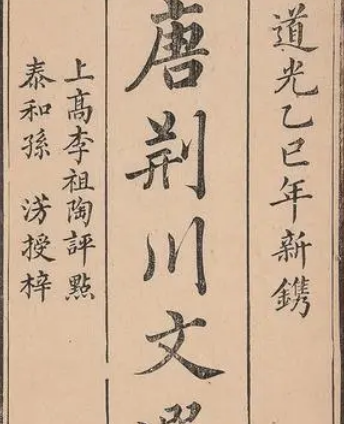 道光乙巳年新鐫
唐荆川文選
上高李祖陶評點
泰和孫 涝授梓